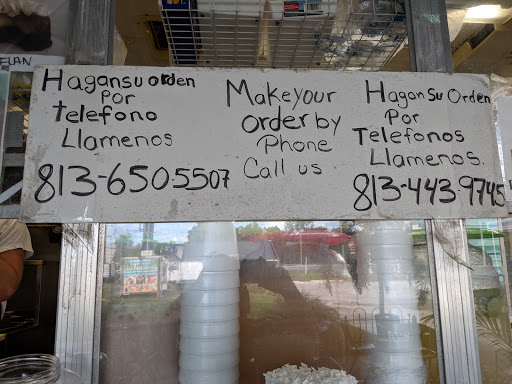 ELAN
Hagan su orden
Por
telefono
Llamenos
813-650-5507
Make your
order by
Phone
Call us
Hagan Su Orden
Por
Telefonos
Llamenos.
813-443-9745